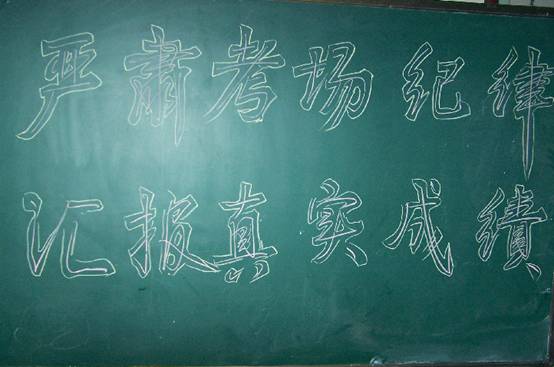 严肃考场纪律
汇报真实成绩